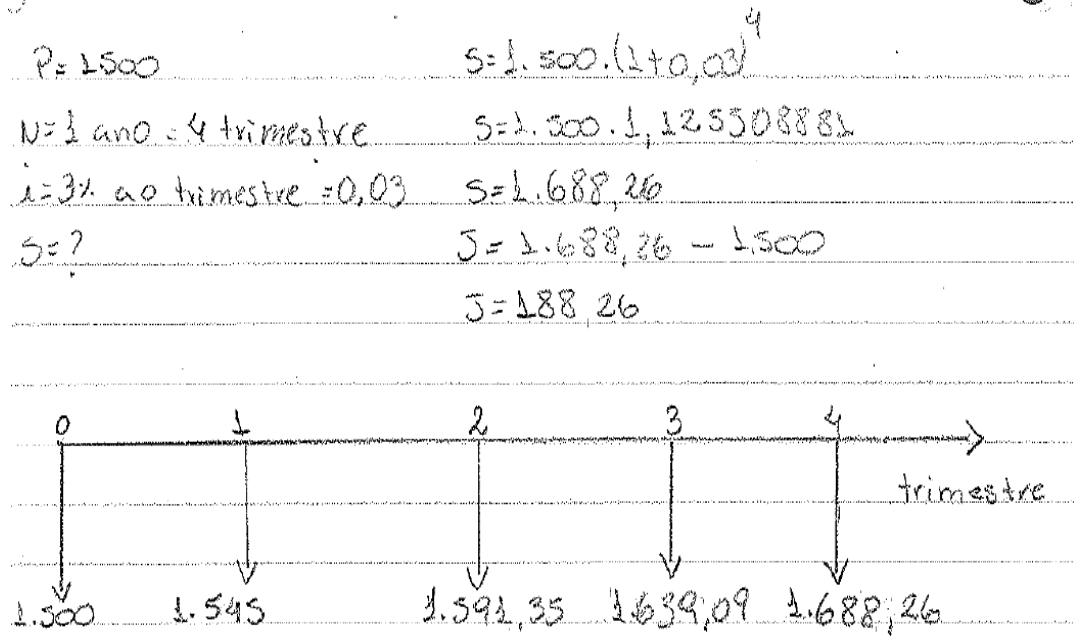 P= 1500
N= 1 ano = 4 trimestre
i= 3% ao trimestre = 0,03
S= ?
S= 1.500.(1+0,03)⁴
S= 1.500.1,125508881
S= 1.688,26
J= 1.688,26 - 1.500
J= 188,26
0 1 2 3 4
trimestre
1.500 1.545 1.591,35 1.639,09 1.688,26